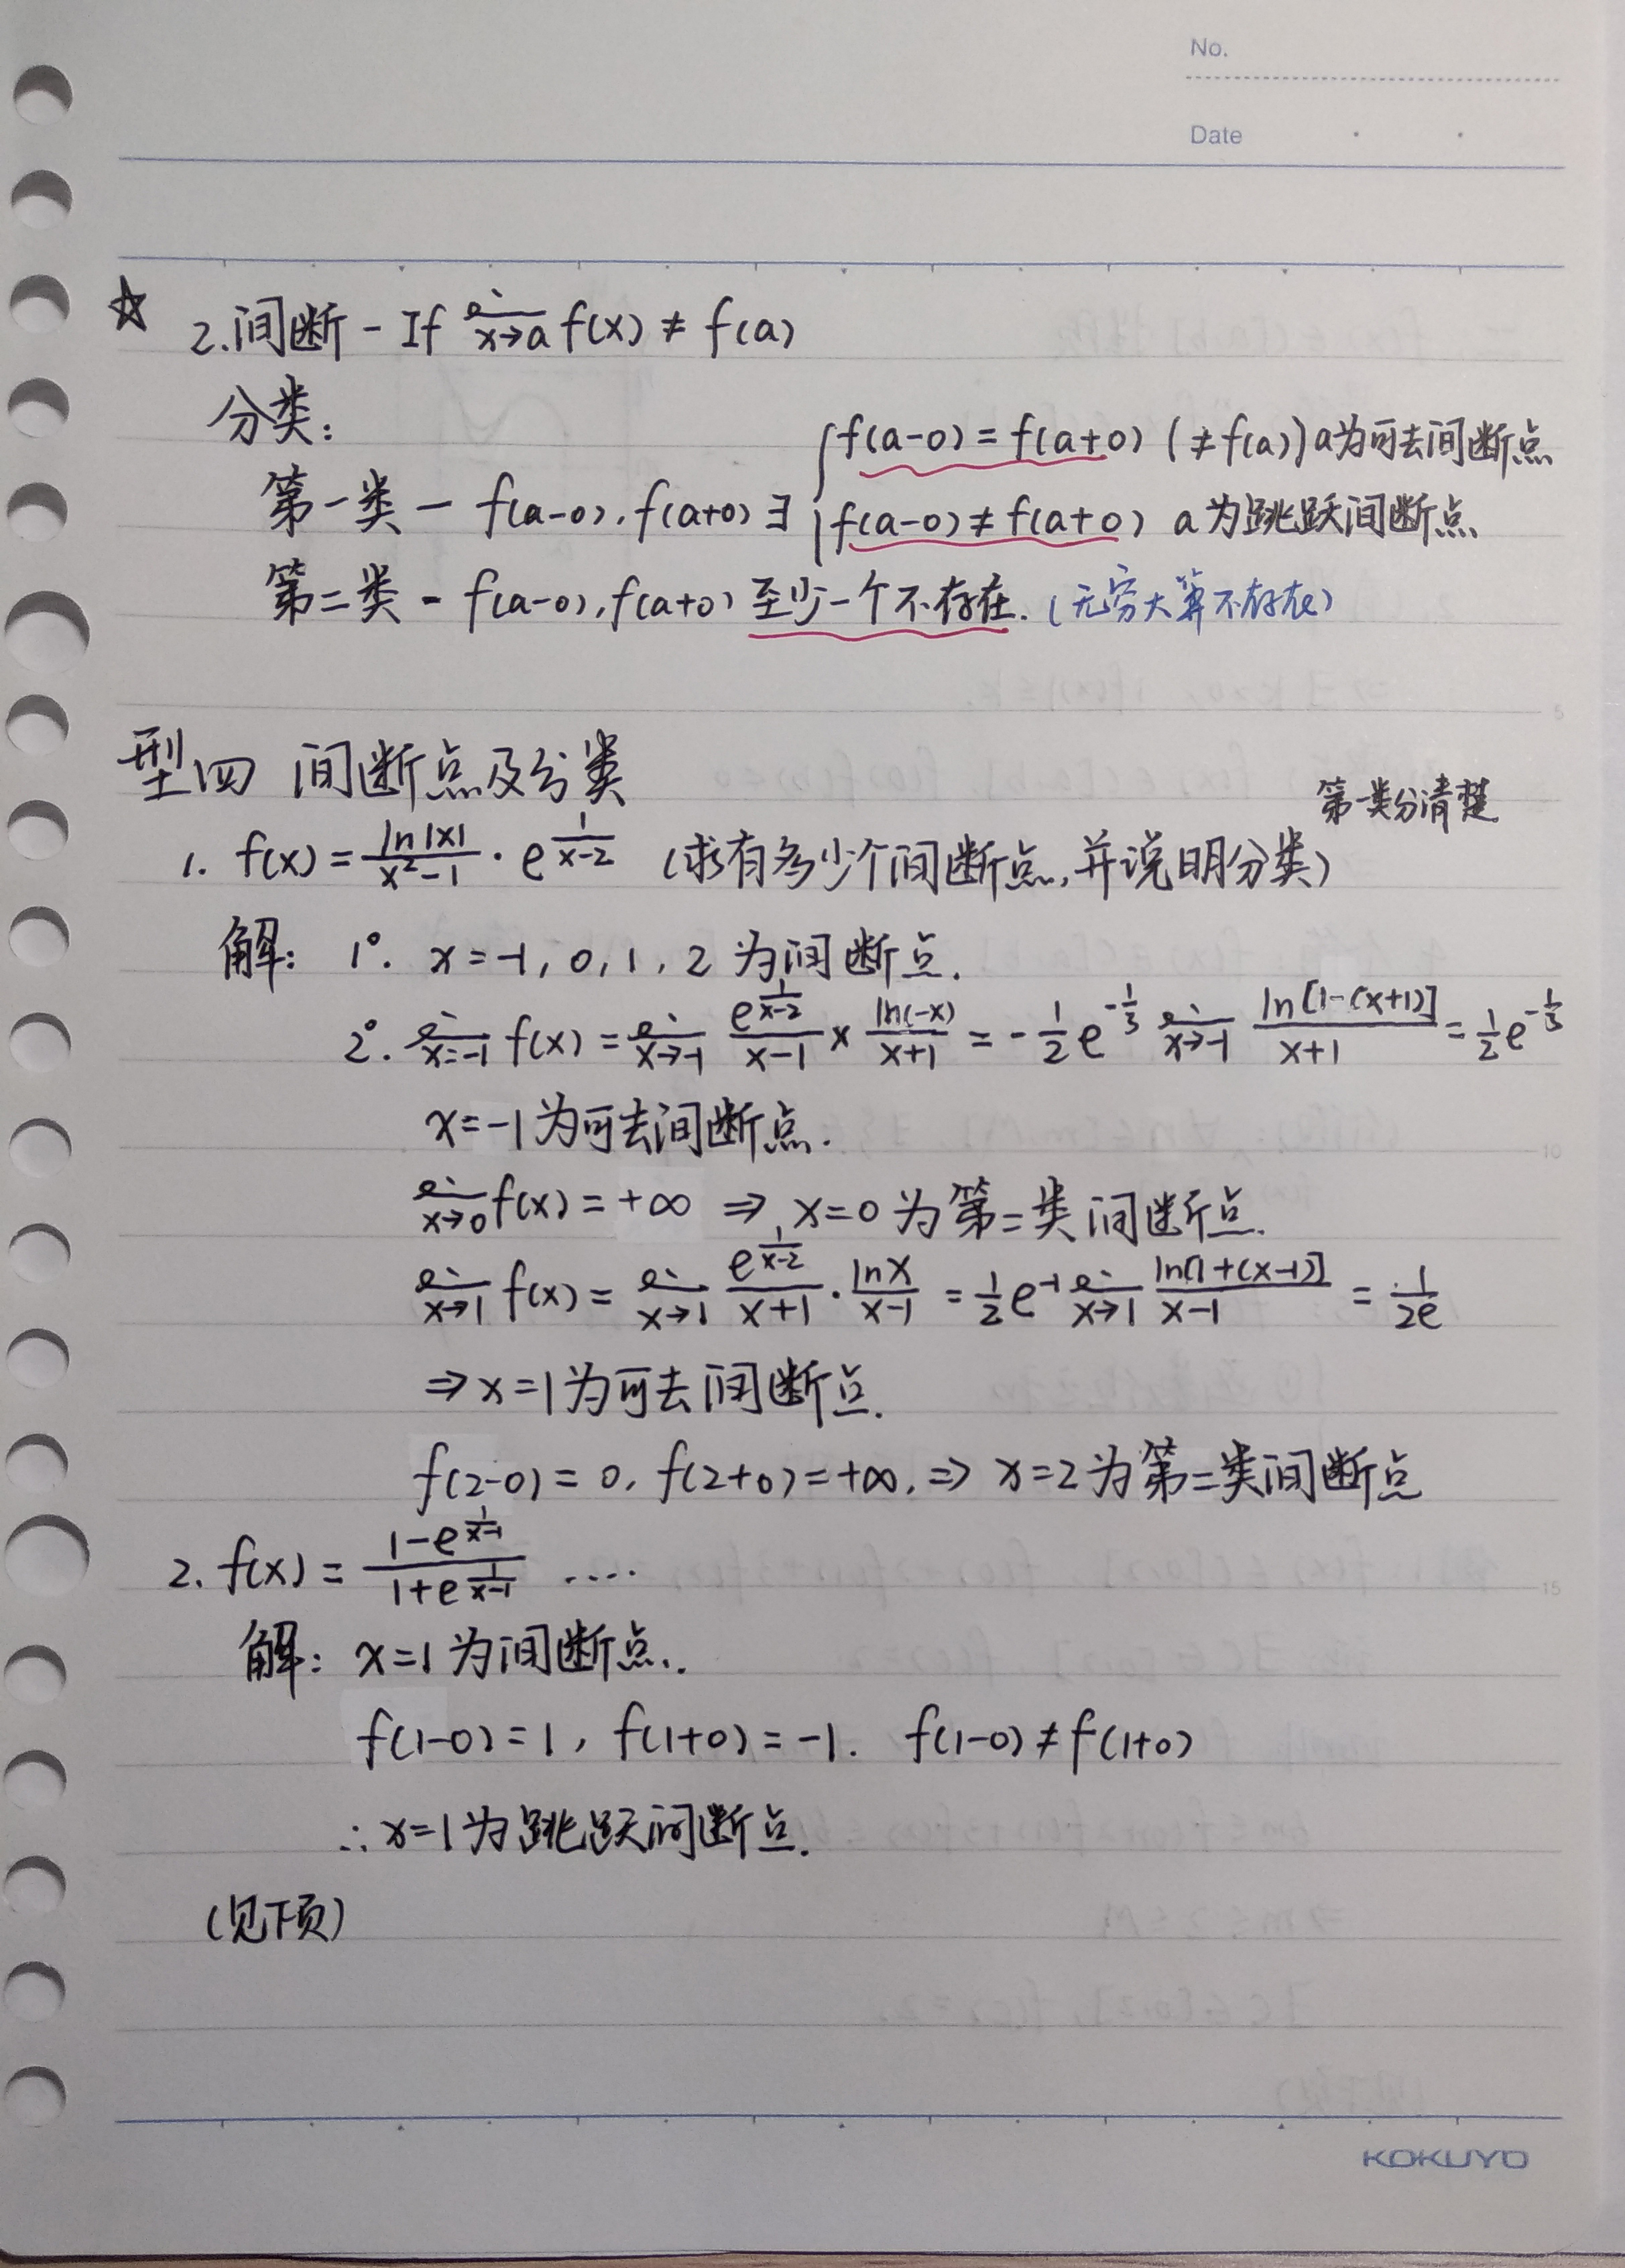 No.
Date
☆ 2.间断 - If lim x→a f(x) ≠ f(a)
分类:
第一类 - f(a-0), f(a+0) ∃ { f(a-0) = f(a+0) (≠f(a)) a为可去间断点
f(a-0) ≠ f(a+0) a为跳跃间断点
第二类 - f(a-0), f(a+0) 至少一个不存在. (无穷大算不存在)
型四 间断点及分类
第一类分清楚
1. f(x) = ln|x|/(x²-1) · e^(1/(x-2)) (求有多少个间断点, 并说明分类)
解: 1°. x = -1, 0, 1, 2 为间断点.
2°. lim x=-1 f(x) = lim x→-1 e^(1/(x-2))/(x-1) × ln(-x)/(x+1) = -1/2 e^(-1/3) lim x→-1 ln[1-(x+1)]/(x+1) = 1/2 e^(-1/3)
x = -1 为可去间断点.
lim x→0 f(x) = +∞ ⇒ x=0 为第二类间断点.
lim x→1 f(x) = lim x→1 e^(1/(x-2))/(x+1) · lnx/(x-1) = 1/2 e^(-1) lim x→1 ln[1+(x-1)]/(x-1) = 1/(2e)
⇒ x=1 为可去间断点.
f(2-0) = 0, f(2+0) = +∞, ⇒ x=2 为第二类间断点
2. f(x) = (1-e^(1/(x-1)))/(1+e^(1/(x-1))) ....
解: x=1 为间断点.
f(1-0) = 1, f(1+0) = -1. f(1-0) ≠ f(1+0)
∴ x=1 为跳跃间断点.
(见下页)
5
10
15
KOKUYO